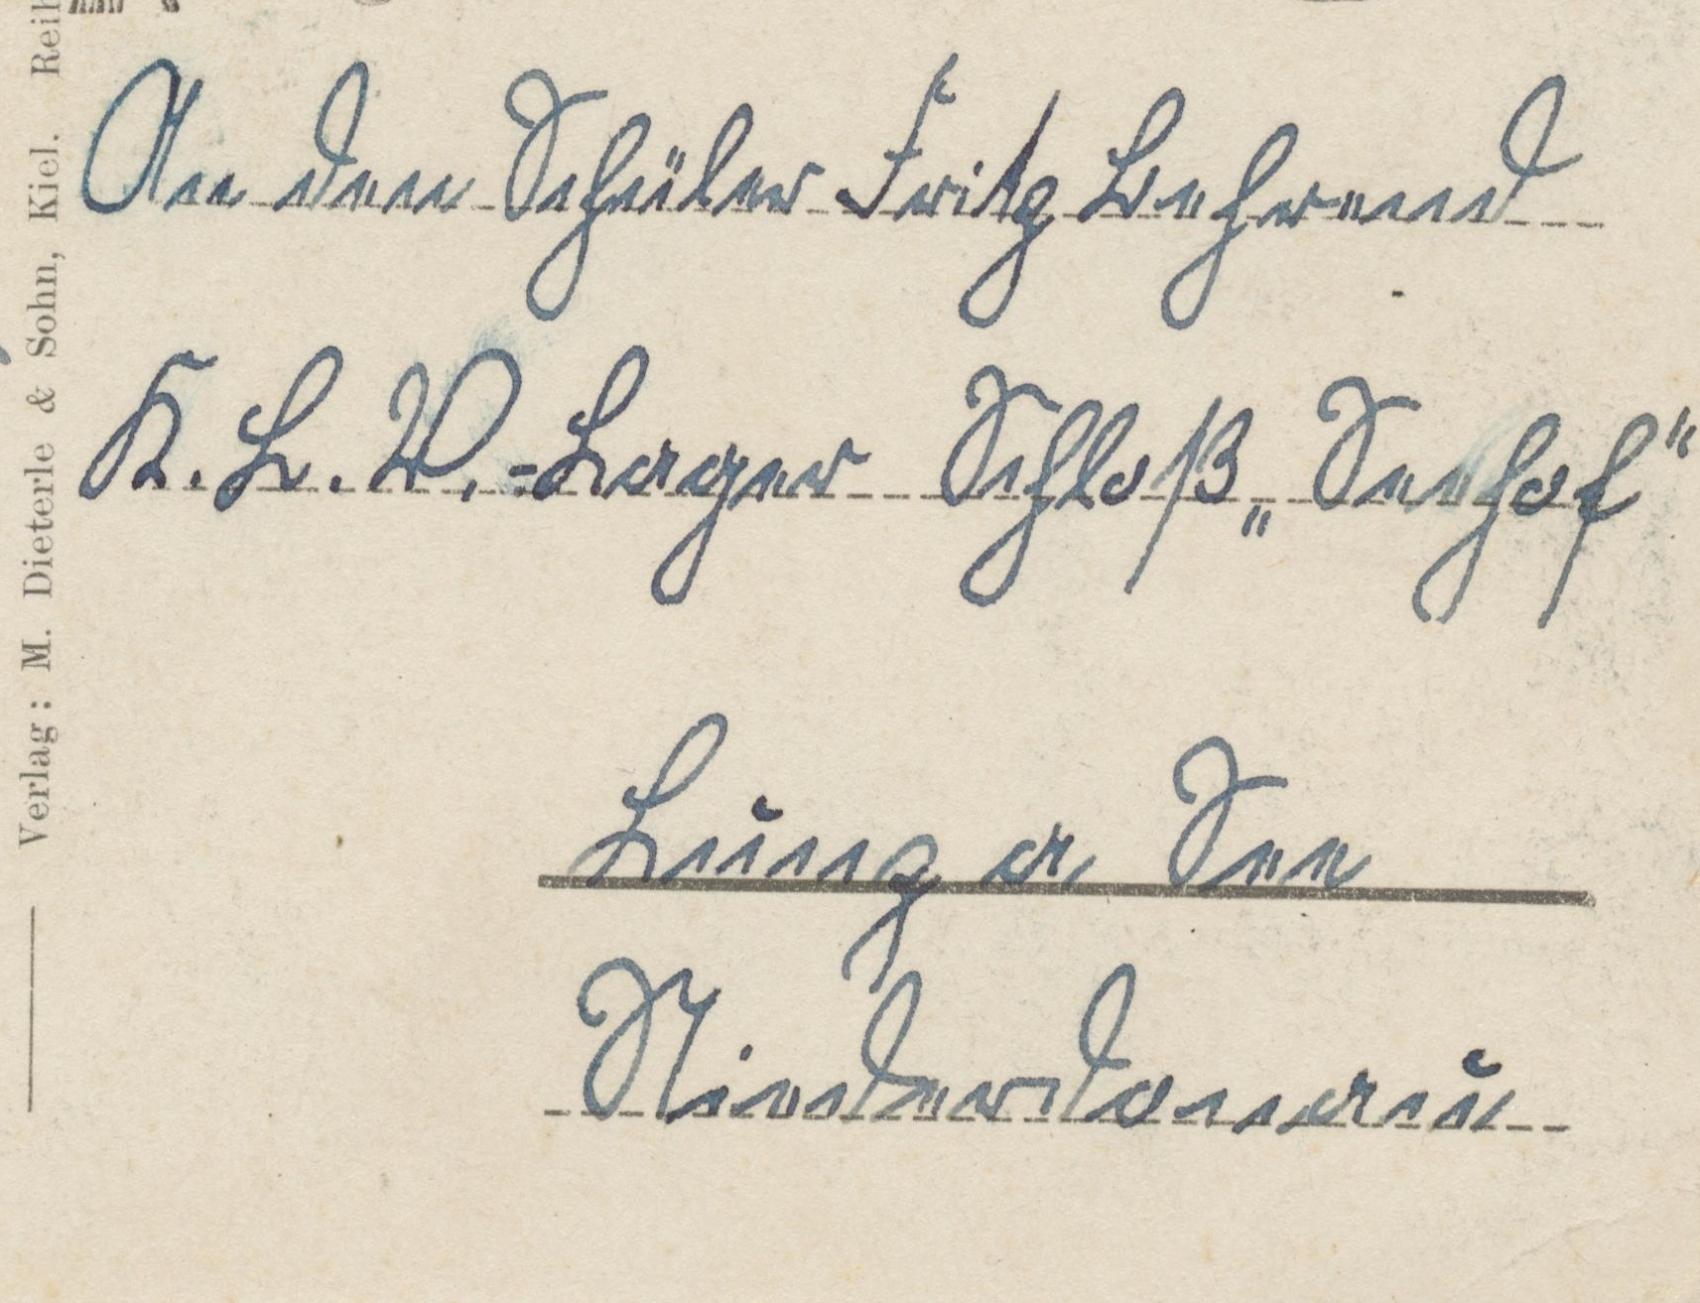 An den Schüler Fritz Behrend
K.L.V.=Lager Schloß „Seehof“
Lunz a. See
Niederdonau
Verlag: M. Dieterle & Sohn, Kiel.